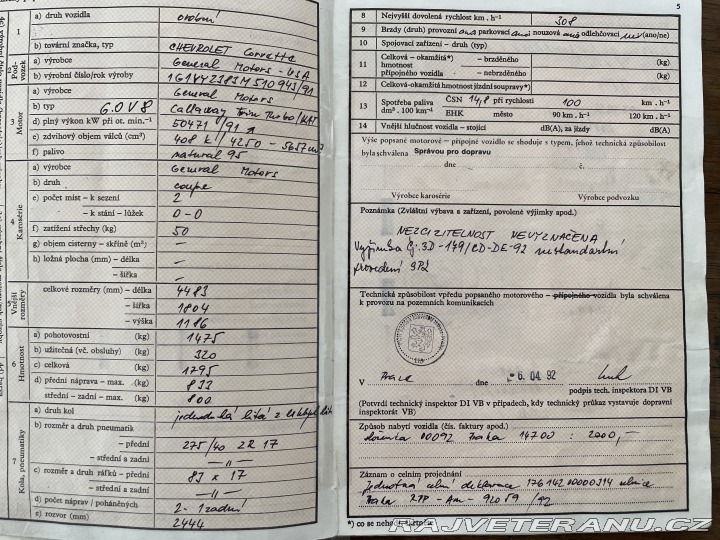 1
a) druh vozidla
osobní
b) tovární značka, typ
CHEVROLET Corvette
Pod-
vozek
a) výrobce
General Motors - USA
b) výrobní číslo/rok výroby
3
Motor
a) výrobce
General Motors
b) typ
6.0 V8
Callaway Twin Turbo/KAT
d) plný výkon kW při ot. min.⁻¹
e) zdvihový objem válců (cm³)
408 k / 4250 - 5657 cm³
f) palivo
natural 95
4
Karosérie
a) výrobce
General Motors
b) druh
coupe
c) počet míst – k sezení
2
– k stání – lůžek
0 - 0
f) zatížení střechy (kg)
50
g) objem cisterny – skříně (m³)
—
h) ložná plocha (mm) – délka
—
– šířka
—
5
Vnější
rozměry
celkové rozměry (mm) – délka
4483
– šířka
1804
– výška
1186
6
Hmotnost
a) pohotovostní (kg)
1475
b) užitečná (vč. obsluhy) (kg)
320
c) celková (kg)
1795
d) přední náprava – max. (kg)
833
střední – zadní – max. (kg)
800
7
Kola, pneumatiky
a) druh kol
jednoduchá litá z lehkých slitin
b) rozměr a druh pneumatik
– přední
275/40 ZR 17
– střední a zadní
—"—
c) rozměr a druh ráfků – přední
– střední a zadní
—"—
d) počet náprav / poháněných
2 - 1 zadní
e) rozvor (mm)
2444
5
8 Nejvyšší dovolená rychlost km . h⁻¹
308
9 Brzdy (druh) provozní ano parkovací ano nouzová ano odlehčovací ne (ano/ne)
10 Spojovací zařízení – druh (typ)
11 Celková – okamžitá*)
hmotnost
přípojného vozidla
– brzděného (kg)
– nebrzděného (kg)
12 Celková-okamžitá hmotnost jízdní soupravy*) (kg)
13 Spotřeba paliva
dm³ . 100 km⁻¹
ČSN 14,8 při rychlosti 100 km . h⁻¹
EHK město 90 km . h⁻¹ 120 km . h⁻¹
14 Vnější hlučnost vozidla – stojící dB(A), za jízdy dB(A)
Výše popsané motorové – přípojné vozidlo se shoduje s typem, jehož technická způsobilost
byla schválena Správou pro dopravu
dne č.
Výrobce karosérie Výrobce podvozku
Poznámka (Zvláštní výbava a zařízení, povolené výjimky apod.)
NEZCIZITELNOST NEVYZNAČENA
Výjimka čj. 3D-149/CD-DE-92 nestandartní
provedení SPZ
Technická způsobilost vpředu popsaného motorového – přípojného vozidla byla schválena
k provozu na pozemních komunikacích
V Praze dne -6. 04. 92
podpis tech. inspektora DI VB
(Potvrdí technický inspektor DI VB v případech, kdy technický průkaz vystavuje dopravní
inspektorát VB)
Způsob nabytí vozidla (čís. faktury apod.)
Praha 14700 : 2000,—
Záznam o celním projednání
jednotná celní deklarace
*) co se nehodí, škrtněte
RAJVETERANU.CZ